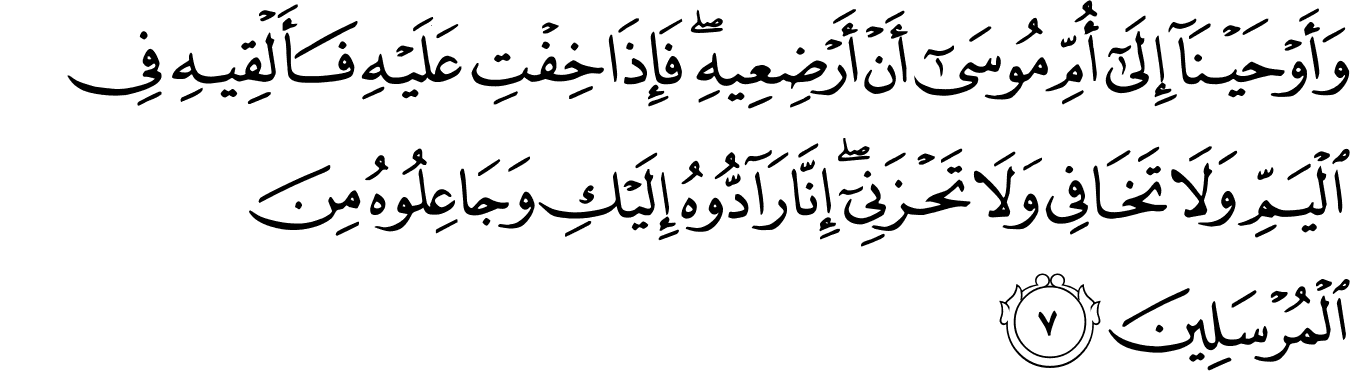 وَأَوۡحَيۡنَآ إِلَىٰٓ أُمِّ مُوسَىٰٓ أَنۡ أَرۡضِعِيهِۖ فَإِذَا خِفۡتِ عَلَيۡهِ فَأَلۡقِيهِ فِي
ٱلۡيَمِّ وَلَا تَخَافِي وَلَا تَحۡزَنِيٓۖ إِنَّا رَآدُّوهُ إِلَيۡكِ وَجَاعِلُوهُ مِنَ
ٱلۡمُرۡسَلِينَ ٧